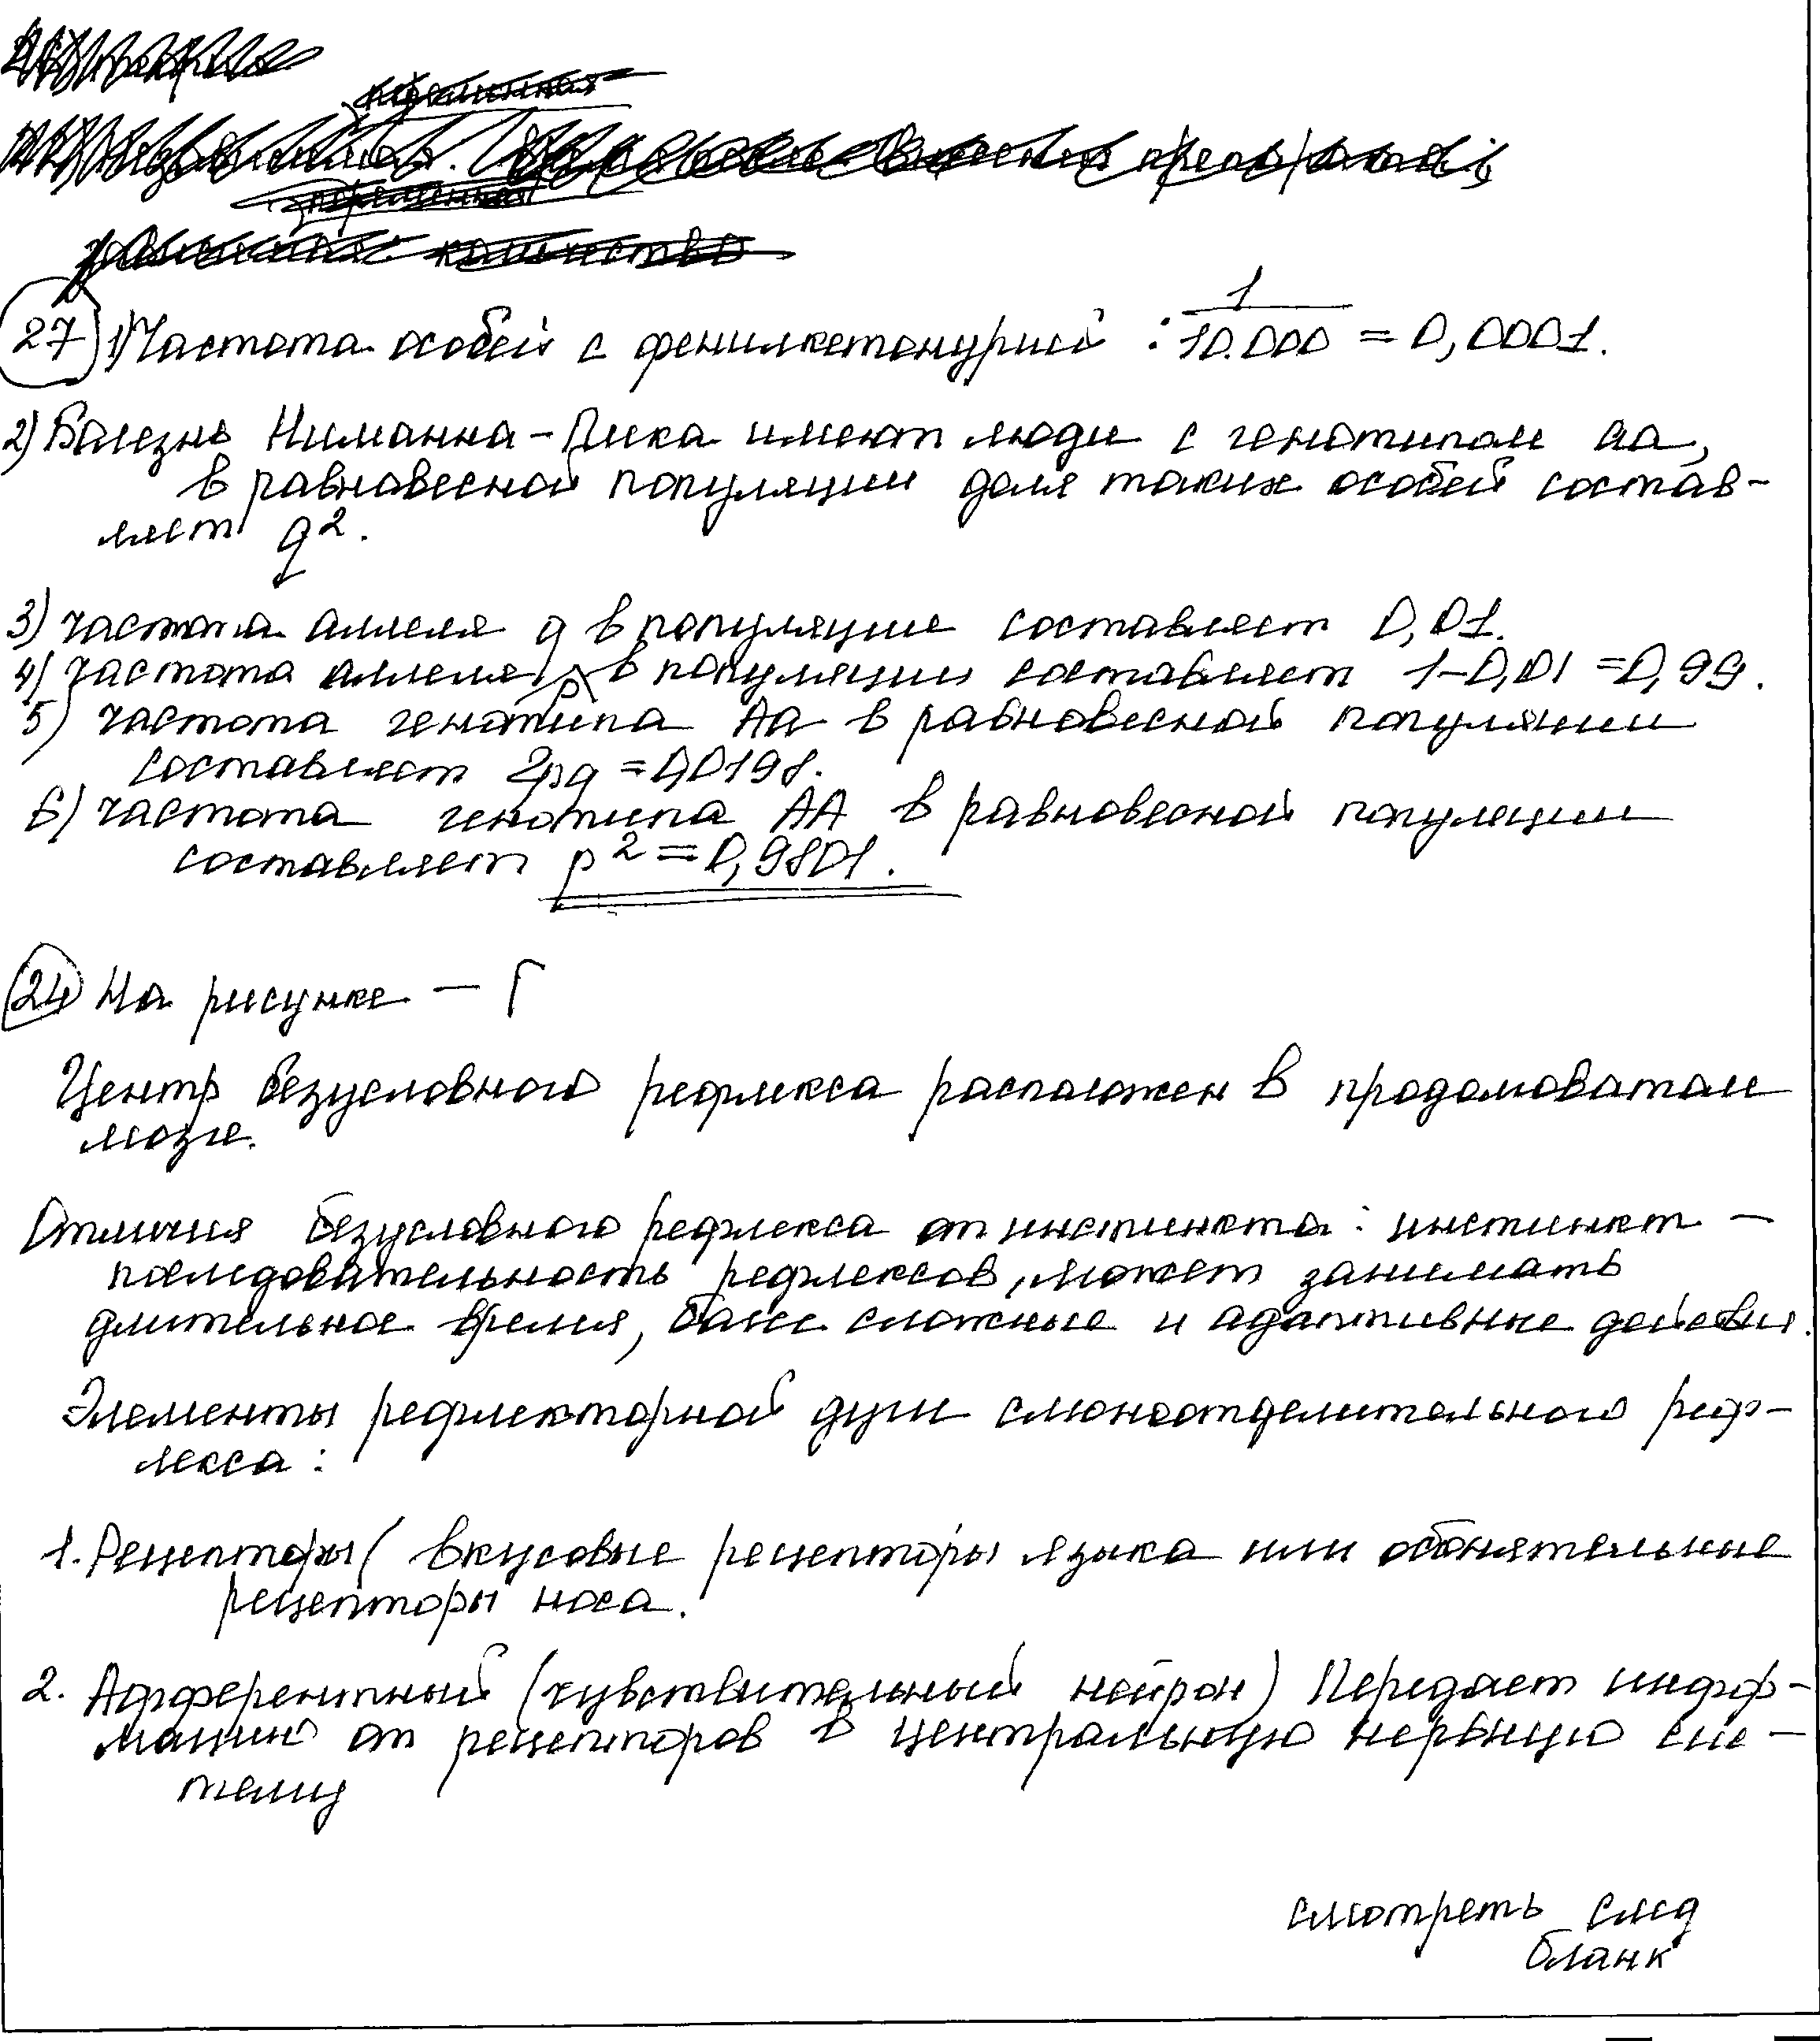 27 1) Частота особей с фенилкетонурией : 1/10.000 = 0,0001.
2) Болезнь Ниманна-Пика имеют люди с генотипом аа,
в равновесной популяции доля таких особей состав-
ляет q².
3) частота аллеля q в популяции составляет 0,01.
4) частота аллеля p в популяции составляет 1-0,01 = 0,99.
5) частота генотипа Аа в равновесной популяции
составляет 2pq = 0,0198.
6) частота генотипа АА в равновесной популяции
составляет p² = 0,9801.
24 На рисунке - Г
Центр безусловного рефлекса расположен в продолговатом
мозге.
Отличия безусловного рефлекса от инстинкта: инстинкт -
последовательность рефлексов, может занимать
длительное время, более сложные и адаптивные действия.
Элементы рефлекторной дуги слюноотделительного реф-
лекса:
1. Рецепторы ( вкусовые рецепторы языка или обонятельные
рецепторы носа.
2. Афферентный (чувствительный нейрон) Передает инфор-
мацию от рецепторов в центральную нервную сис-
тему
смотреть след
бланк